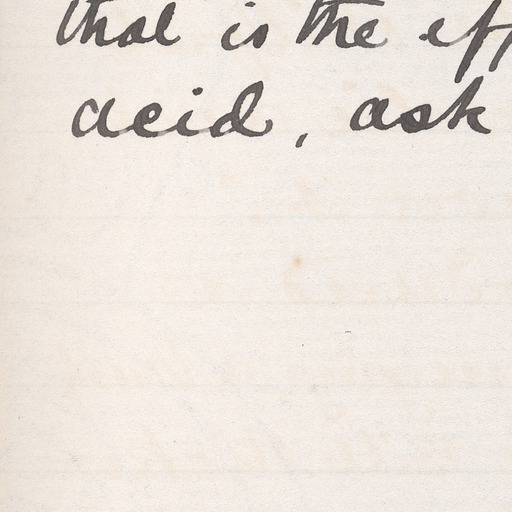 that is the eff
acid, ask